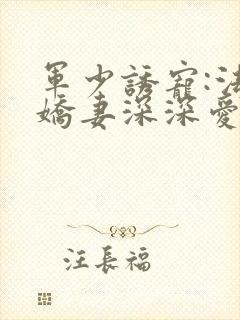 軍少誘寵:法
嬌妻深深愛
汪長福